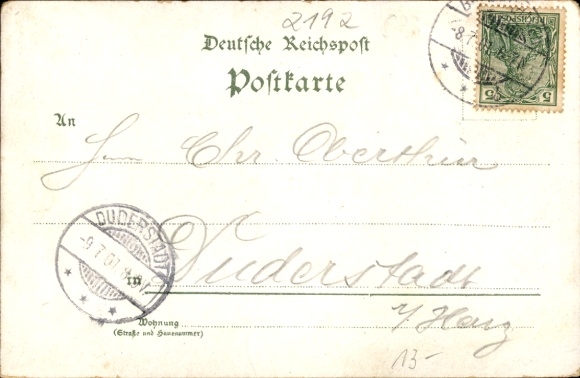 2192
Deutsche Reichspost
Postkarte
An
Herrn Chr. Oberthür
Duderstadt
in
i/Harz
Wohnung
(Straße und Hausnummer)
13-
DUDERSTADT
-9.7.01
-8.7.01
5 5
REICHSPOST